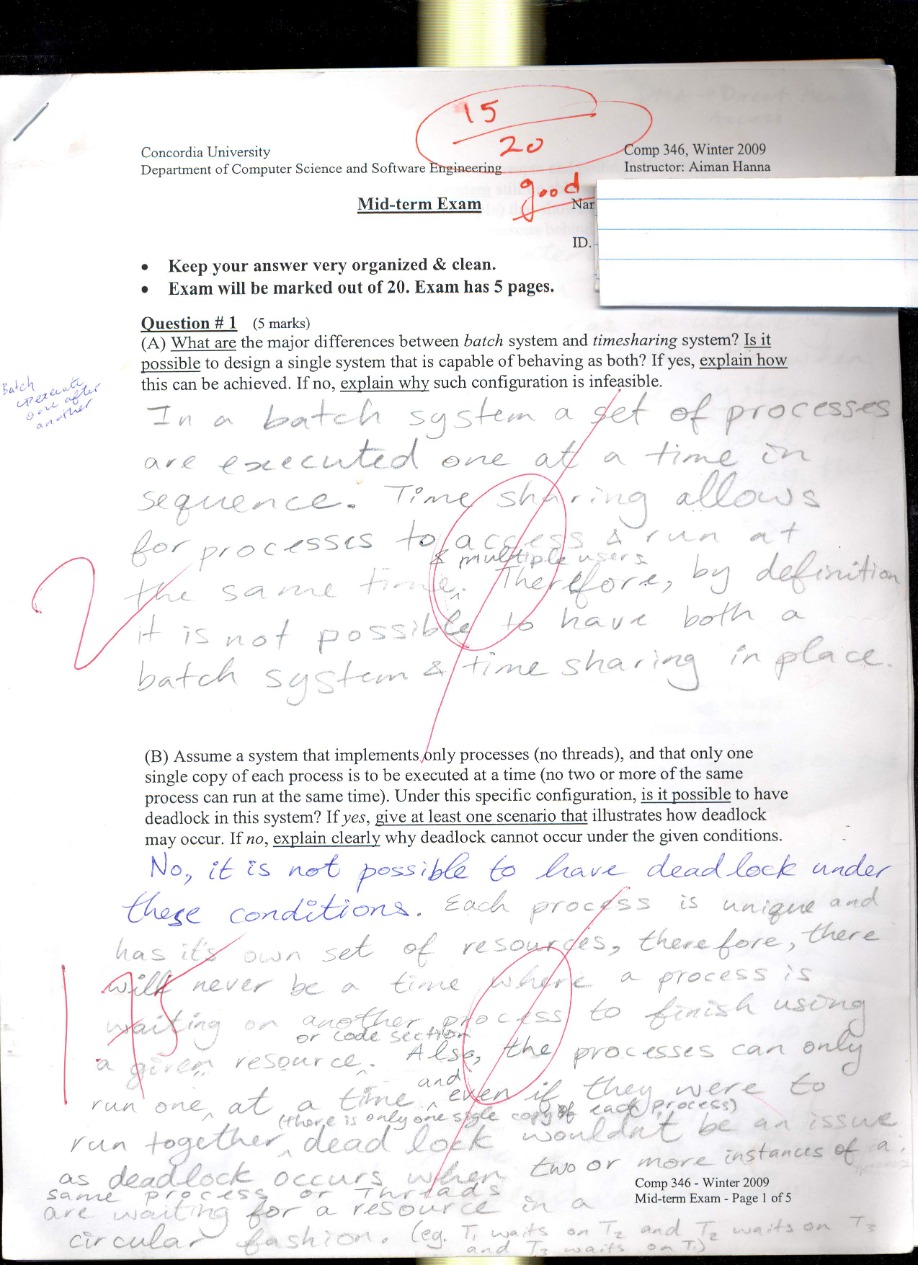 15
20
good
Concordia University
Comp 346, Winter 2009
Department of Computer Science and Software Engineering
Instructor: Aiman Hanna
Mid-term Exam
ID.
• Keep your answer very organized & clean.
• Exam will be marked out of 20. Exam has 5 pages.
Question # 1 (5 marks)
(A) What are the major differences between batch system and timesharing system? Is it
possible to design a single system that is capable of behaving as both? If yes, explain how
this can be achieved. If no, explain why such configuration is infeasible.
Batch
execute
one after
another
In a batch system a set of processes
are executed one at a time in
sequence. Time sharing allows
for processes to access & run at
& multiple users
the same time. Therefore, by definition
it is not possible to have both a
batch system & time sharing in place.
2
(B) Assume a system that implements only processes (no threads), and that only one
single copy of each process is to be executed at a time (no two or more of the same
process can run at the same time). Under this specific configuration, is it possible to have
deadlock in this system? If yes, give at least one scenario that illustrates how deadlock
may occur. If no, explain clearly why deadlock cannot occur under the given conditions.
No, it is not possible to have deadlock under
these conditions. Each process is unique and
has it's own set of resources, therefore, there
will never be a time where a process is
waiting on another process to finish using
or code section
a given resource. Also, the processes can only
and
run one at a time even if they were to
(there is only one single copy of each process)
run together, dead lock wouldn't be an issue
as deadlock occurs when two or more instances of a
same process or Threads
are waiting for a resource in a
circular fashion. (eg. T1 waits on T2 and T2 waits on T3
and T3 waits on T1)
Comp 346 - Winter 2009
Mid-term Exam - Page 1 of 5